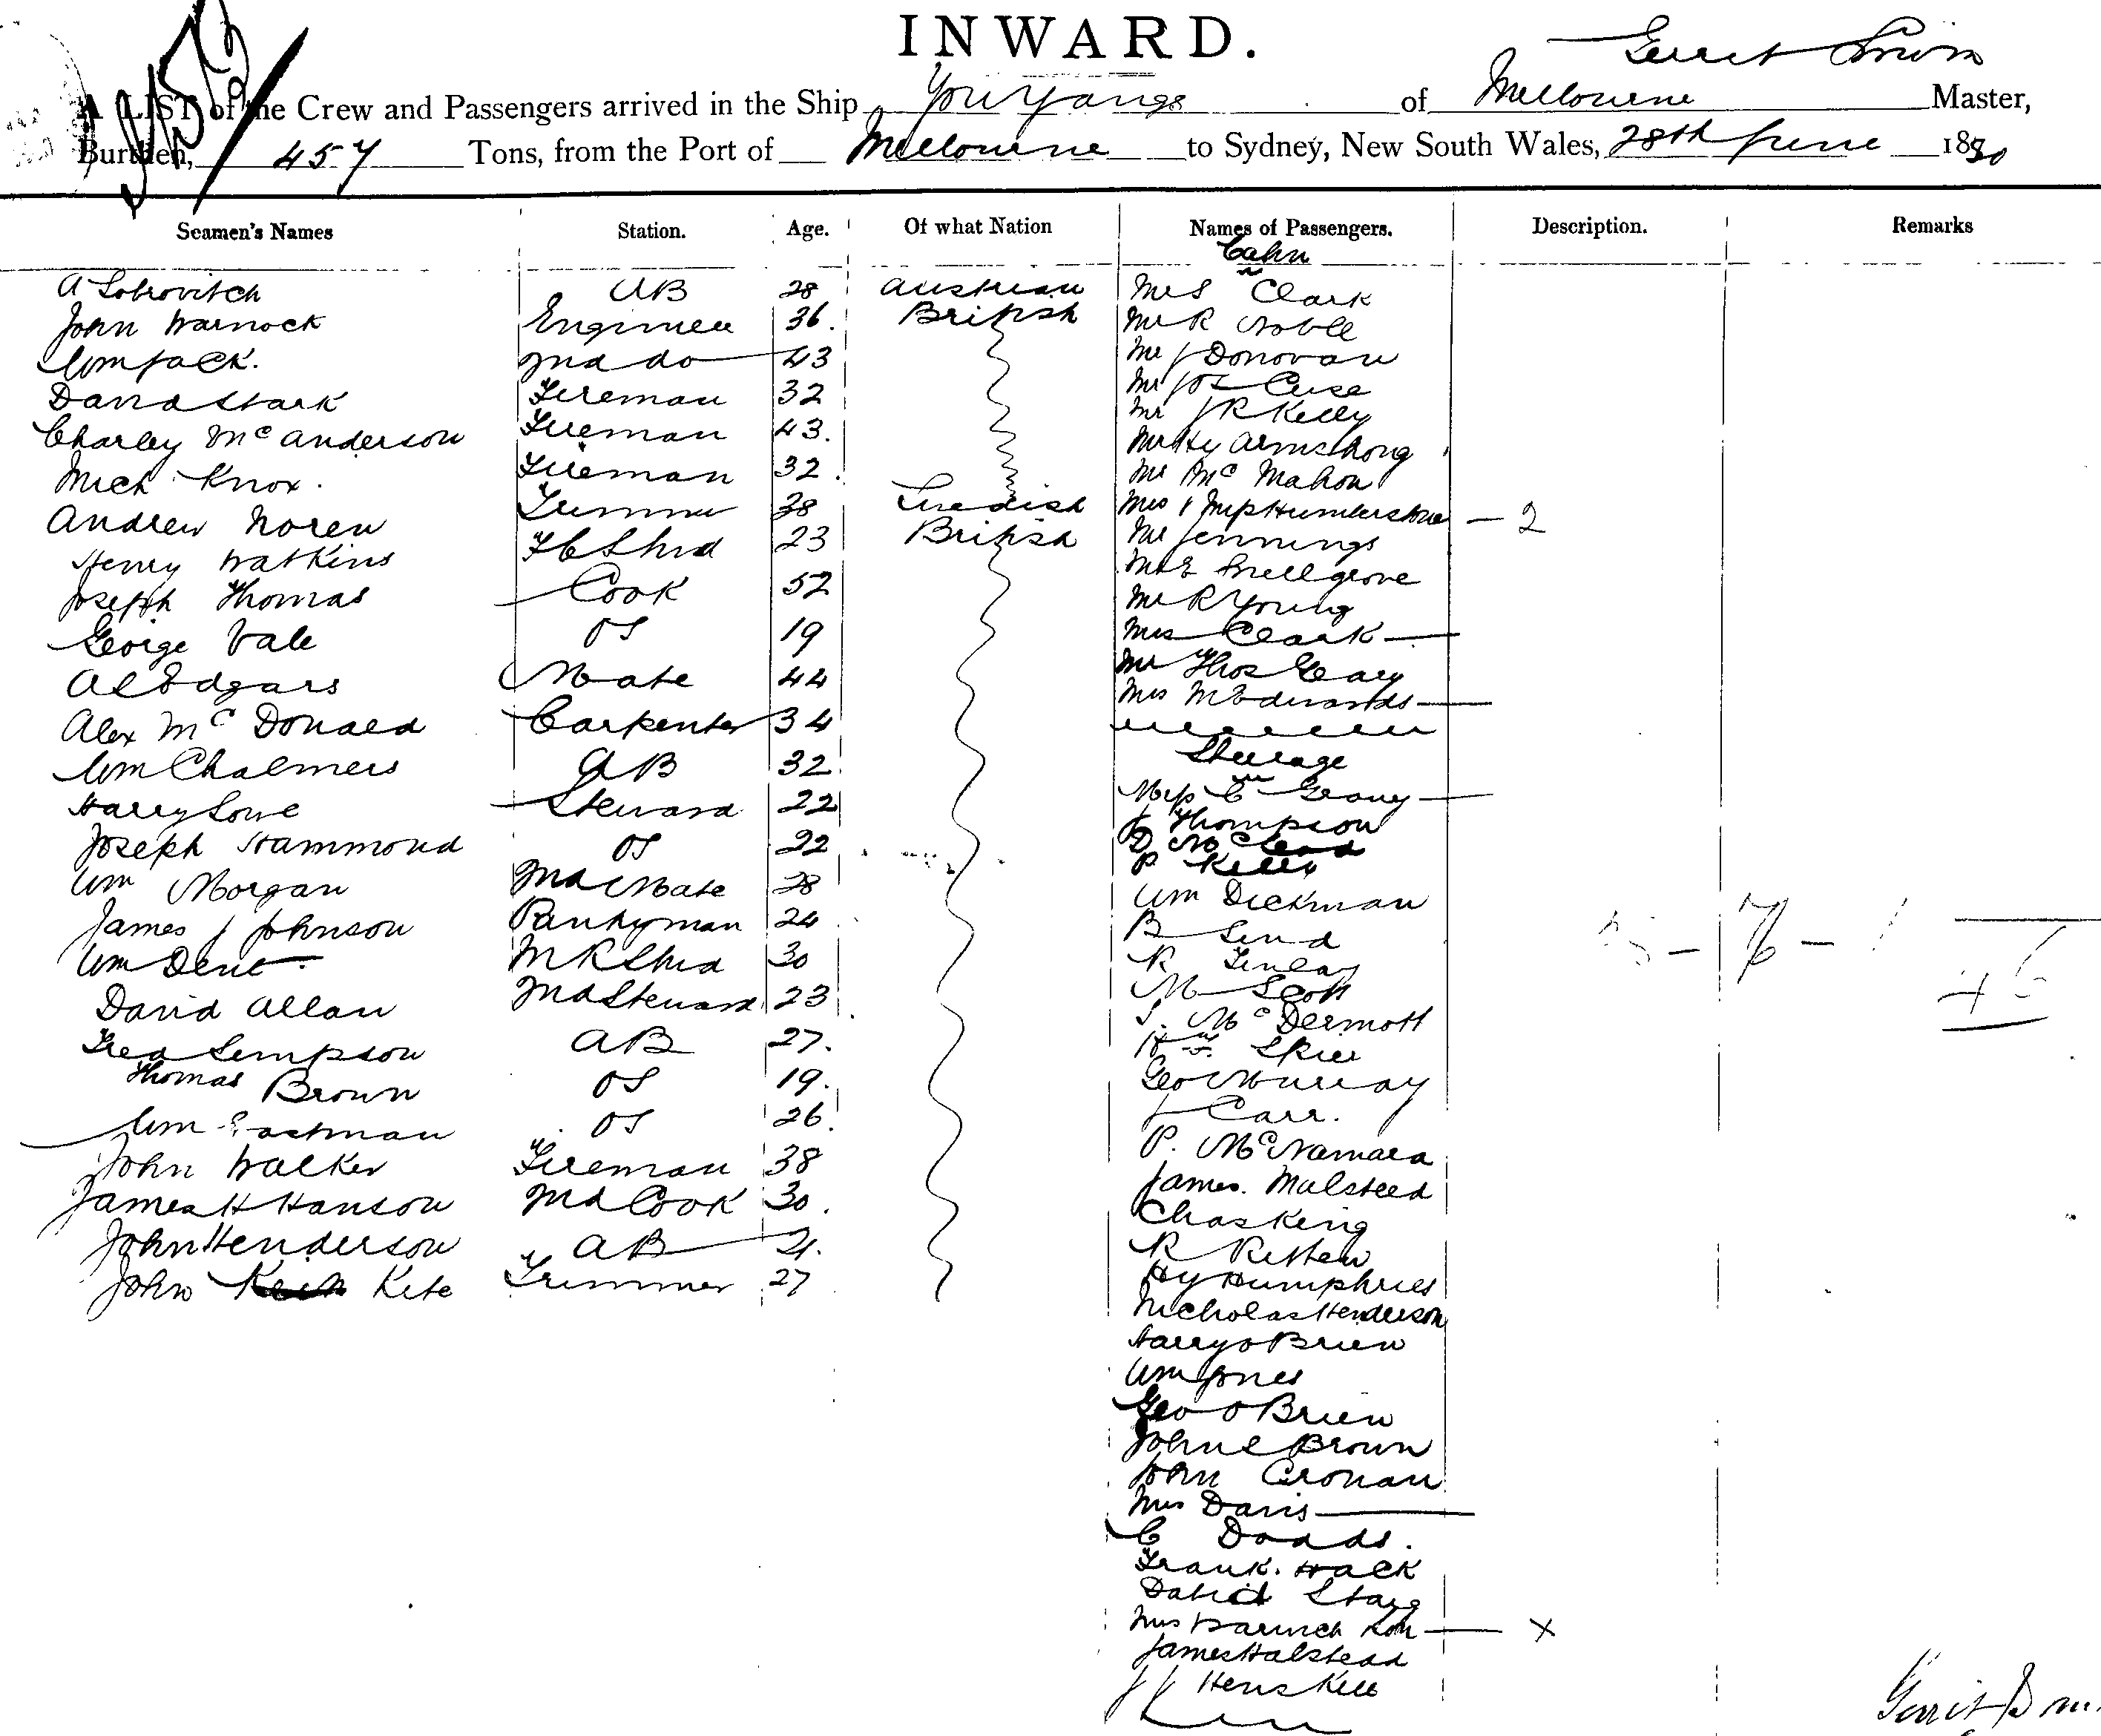 INWARD.
A LIST of the Crew and Passengers arrived in the Ship You Yangs of Melbourne Master,
Burthen, 457 Tons, from the Port of Melbourne to Sydney, New South Wales, 28th June 1890
Seamen's Names Station. Age. Of what Nation Names of Passengers. Description. Remarks
Cabin
A AB 28 Austrian Mr S Clark
John Warnock Engineer 36. British Mr R Noble
Wm Jack. 2nd do 43 Mr J Donovan
David Stark Fireman 32 Mr Jos
Charley McAnderson Fireman 43. Mr J R Kelly
Mich Knox. Fireman 32. Mr Hy Armstrong
Andrew Noren Trimmer 38 Swedish Mr McMahon
Henry Watkins 23 British Mrs & Miss Humberstone - 2
Joseph Thomas Cook 52 Mr Jennings
George Vale OS 19 Mr E Snellgrove
Al Edgars Mate 44 Mr R Young
Alex McDonald Carpenter 34 Mrs Clark
Wm Chalmers AB 32. Mr Thos Geary
Harry Lowe Steward 22 Mrs M Edwards
Joseph Hammond OS 22 Steerage
Wm Morgan 2nd Mate 28 Miss C
James J Johnson Pantryman 24 J Thompson
Wm Dent 30 D McLeod
David Allan 2nd Steward 23 P Kelly
Fred Simpson AB 27. Wm Dickman
Thomas Brown OS 19. B
Wm Eastman OS 26. R Finlay
John Walker Fireman 38 M Scott
James H Hanson 2nd Cook 30. McDermott
John Henderson AB 21.
John Kite Trimmer 27 Geo Murray
J Carr.
P. McNamara
James. Malsteed
Chas King
R Ritten
Hy Humphries
Nicholas Henderson
Harry O Brien
Wm Jones
Geo O Brien
John E Brown
John Cronan
Mrs Davis
C Dodds.
Frank. Wack
David Stagg
Mrs X
James Halstead
J J Henskell